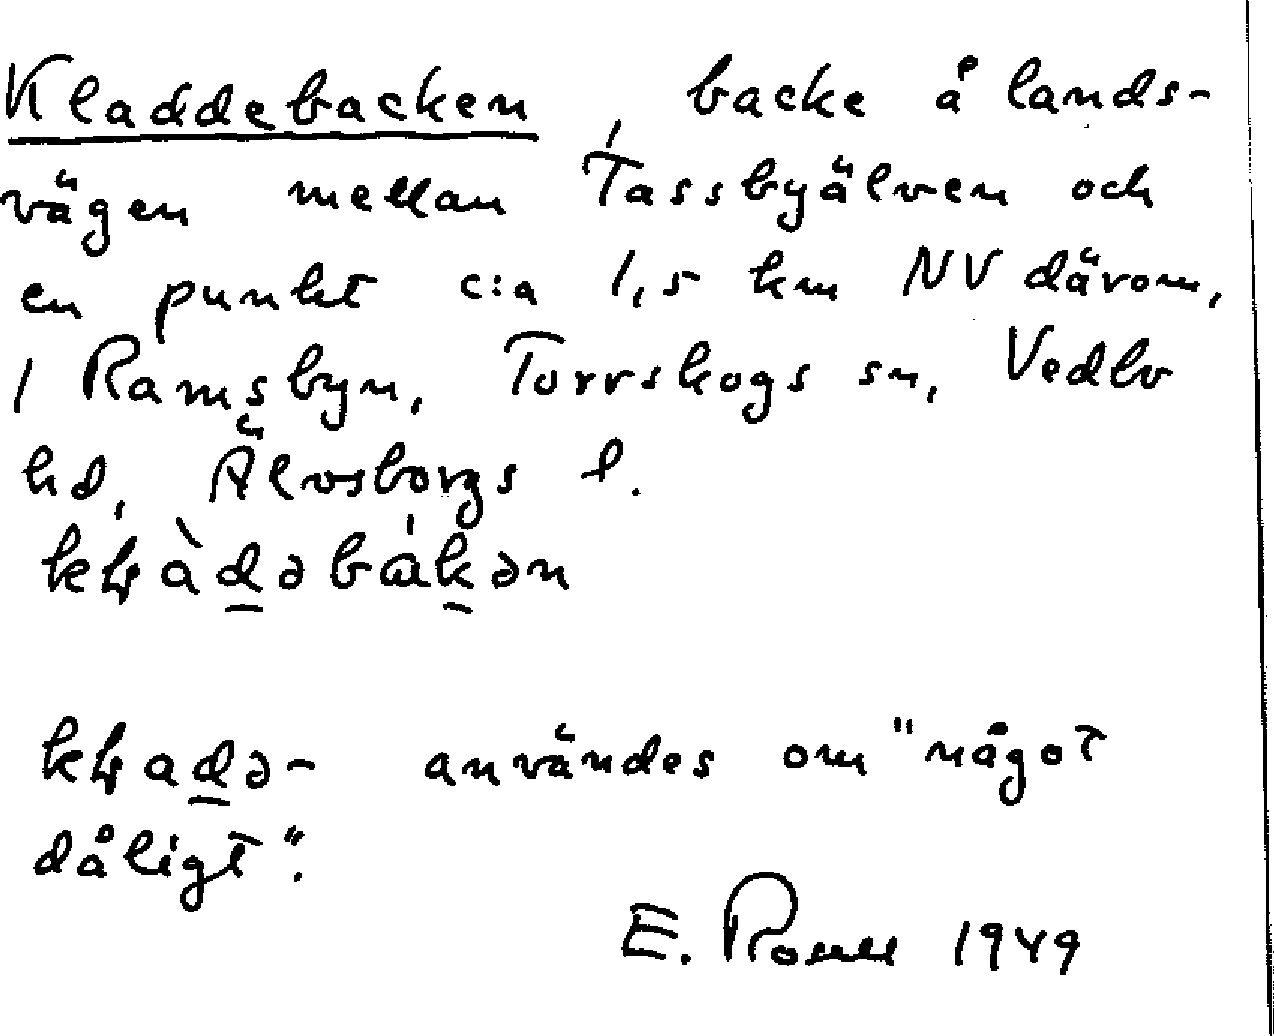 Kladdebacken, backe å lands-
vägen mellan Tassbyälven och
en punkt c:a 1,5 km NV därom,
i Ramsbyn, Torrskogs sn, Vedbo
hd, Älvsborgs l.
kɫàd̲əbák̲ən
kɫad̲ə- användes om "något
dåligt".
E. Rosell 1949